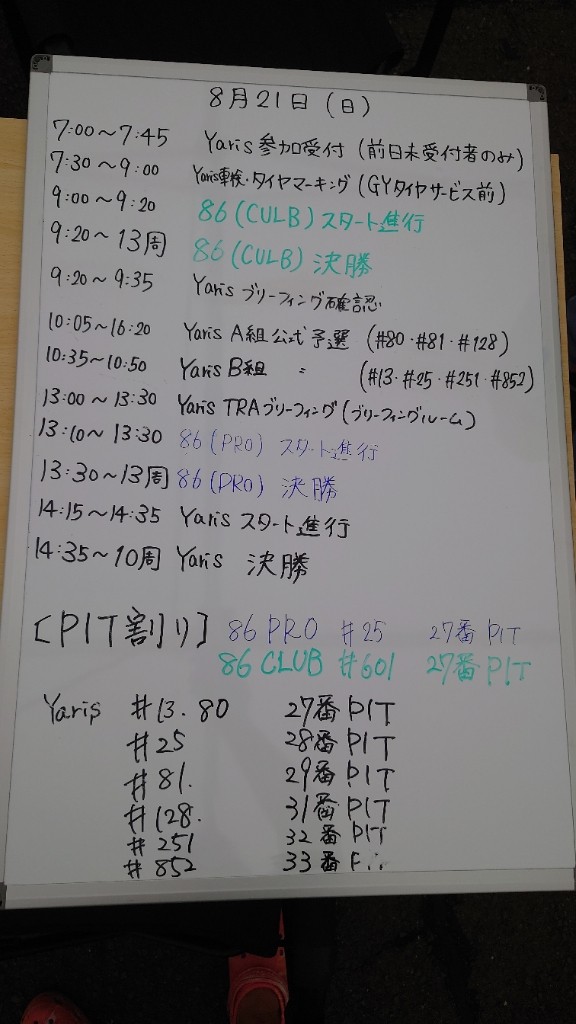 8月21日(日)
7:00〜7:45 Yaris参加受付(前日未受付者のみ)
7:30〜9:00 Yaris車検・タイヤマーキング(GYタイヤサービス前)
9:00〜9:20 86(CULB)スタート進行
9:20〜13周 86(CULB)決勝
9:20〜9:35 Yarisブリーフィング確認
10:05〜16:20 Yaris A組公式予選(#80・#81・#128)
10:35〜10:50 Yaris B組 〃 (#13・#25・#251・#852)
13:00〜13:30 Yaris TRAブリーフィング(ブリーフィングルーム)
13:10〜13:30 86(PRO)スタート進行
13:30〜13周 86(PRO)決勝
14:15〜14:35 Yaris スタート進行
14:35〜10周 Yaris 決勝
[PIT割り] 86 PRO #25 27番PIT
86 CLUB #601 27番PIT
Yaris #13.80 27番PIT
#25 28番PIT
#81. 29番PIT
#128. 31番PIT
#251 32番PIT
#852 33番